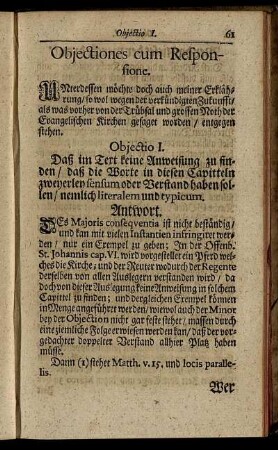 Objectio I. 61
Objectiones cum Respon-
sione.
UNterdessen möchte doch auch meiner Erklåh-
rung / so wol wegen der verkündigten Zukunfft /
als was vorher von der Trübsal und grossen Noth der
Evangelischen Kirchen gesaget worden / entgegen
stehen.
Objectio I.
Daß im Text keine Anweisung zu fin-
den / daß die Worte in diesen Capitteln
zweyerley sensum oder Verstand haben sol-
len / nemlich literalem und typicum.
Antwort.
DEs Majoris conseqventia ist nicht beståndig /
und kan mit vielen Instantien infringirt wer-
den / nur ein Exempel zu geben; In der Offenb.
St. Johannis cap. VI. wird vorgestellet ein Pferd wel-
ches die Kirche / und der Reuter wodurch der Regente
derselben von allen Auslegern verstanden wird / da
doch von dieser Auslegung keine Anweisung in solchem
Capittel zu finden; und dergleichen Exempel können
in Menge angeführet werden / wiewol auch der Minor
bey der Objection nicht gar feste stehet / massen durch
eine ziemliche Folge erwiesen werden kan / daß der vor-
gedachter doppelter Verstand allhier Platz haben
müsse.
Dann (1) stehet Matth. v. 15. und locis paralle-
lis.
Wer